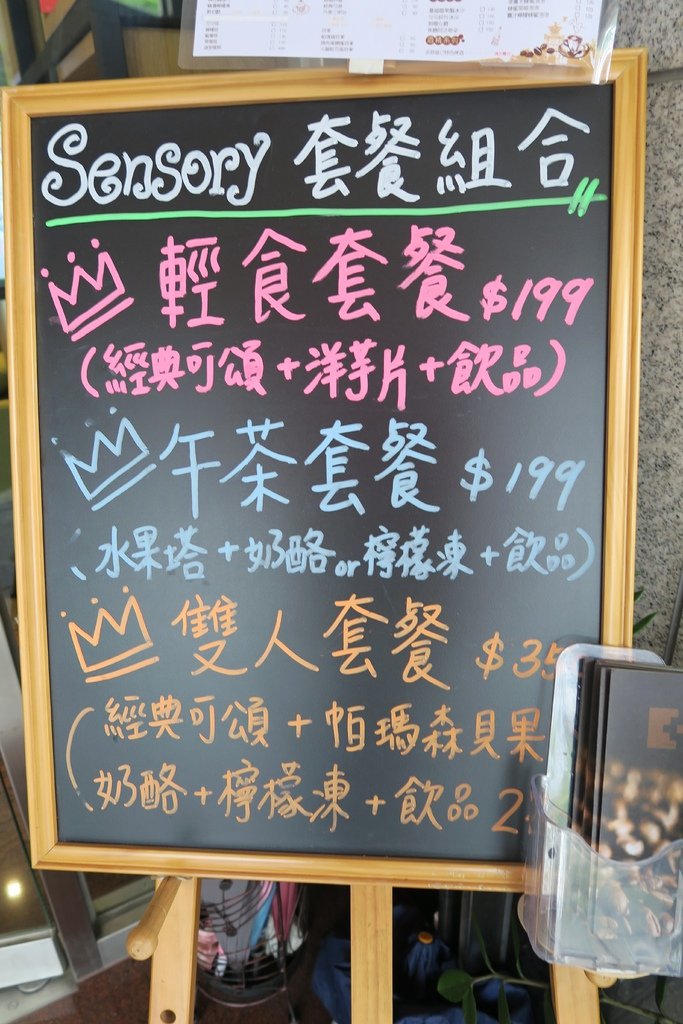 Sensory 套餐組合
輕食套餐 $199
(經典可頌+洋芋片+飲品)
午茶套餐 $199
(水果塔+奶酪or檸檬凍+飲品)
雙人套餐 $35
(經典可頌+帕瑪森貝果
奶酪+檸檬凍+飲品 2